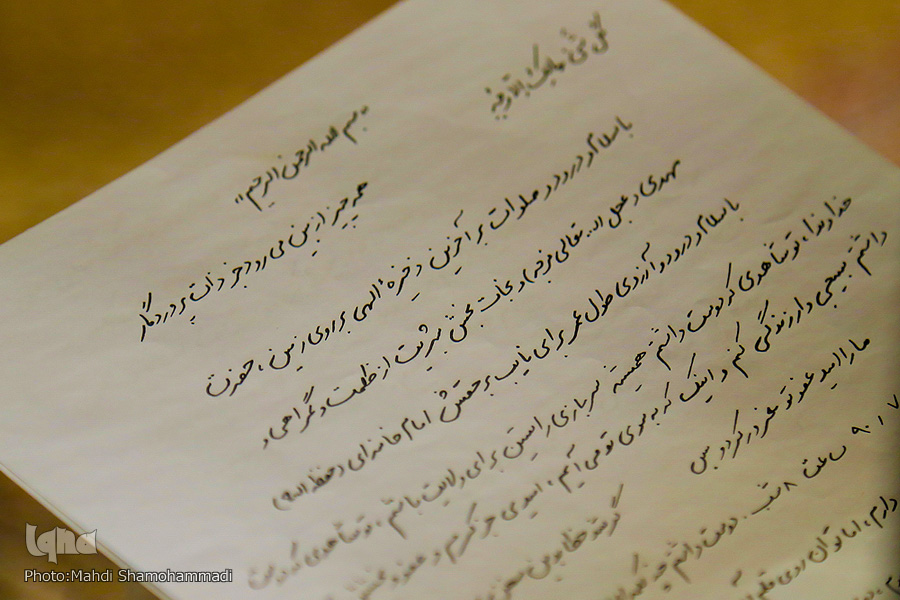 كل شیء هالك الا وجهه
"بسم الله الرحمن الرحیم"
همه چیز از بین می رود جز ذات پروردگار
با سلام و درود و صلوات بر آخرین ذخیرهٔ الهی بر روی زمین، حضرت
مهدی (عجل الله تعالی فرجه) و نجات بخش بشریت از ظلمت و گمراهی و
با سلام و درود و آرزوی طول عمر برای نایب بر حقش امام خامنه ای (حفظه الله)
خداوندا، تو شاهدی که دوست داشتم همیشه سربازی راستین برای ولایت باشم، تو شاهدی که دوست
داشتم بسیجی وار زندگی کنم و اینک که به سوی تو می آیم، امیدی جز کرم و عفو و بخشش
ما را امید عفو تو مغرور کرد و بس
گرنه خطا بدین
۷ / ۹۰ ساعت ۸ شب. دوست داشتم
دارم، اما توان روی
iqna
Photo:Mahdi Shamohammadi